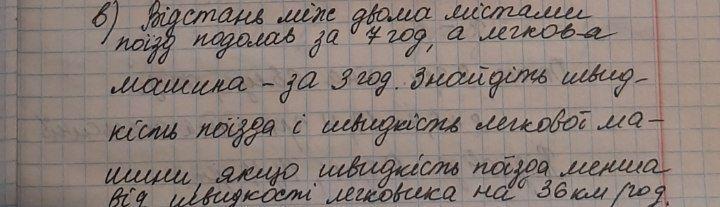 в) Відстань між двома містами
поїзд подолав за 7 год, а легков-а
машина - за 3 год. Знайдіть швид-
кість поїзда і швидкість легкової ма-
шини, якщо швидкість поїзда менша
від швидкості легковика на 36 км/год.